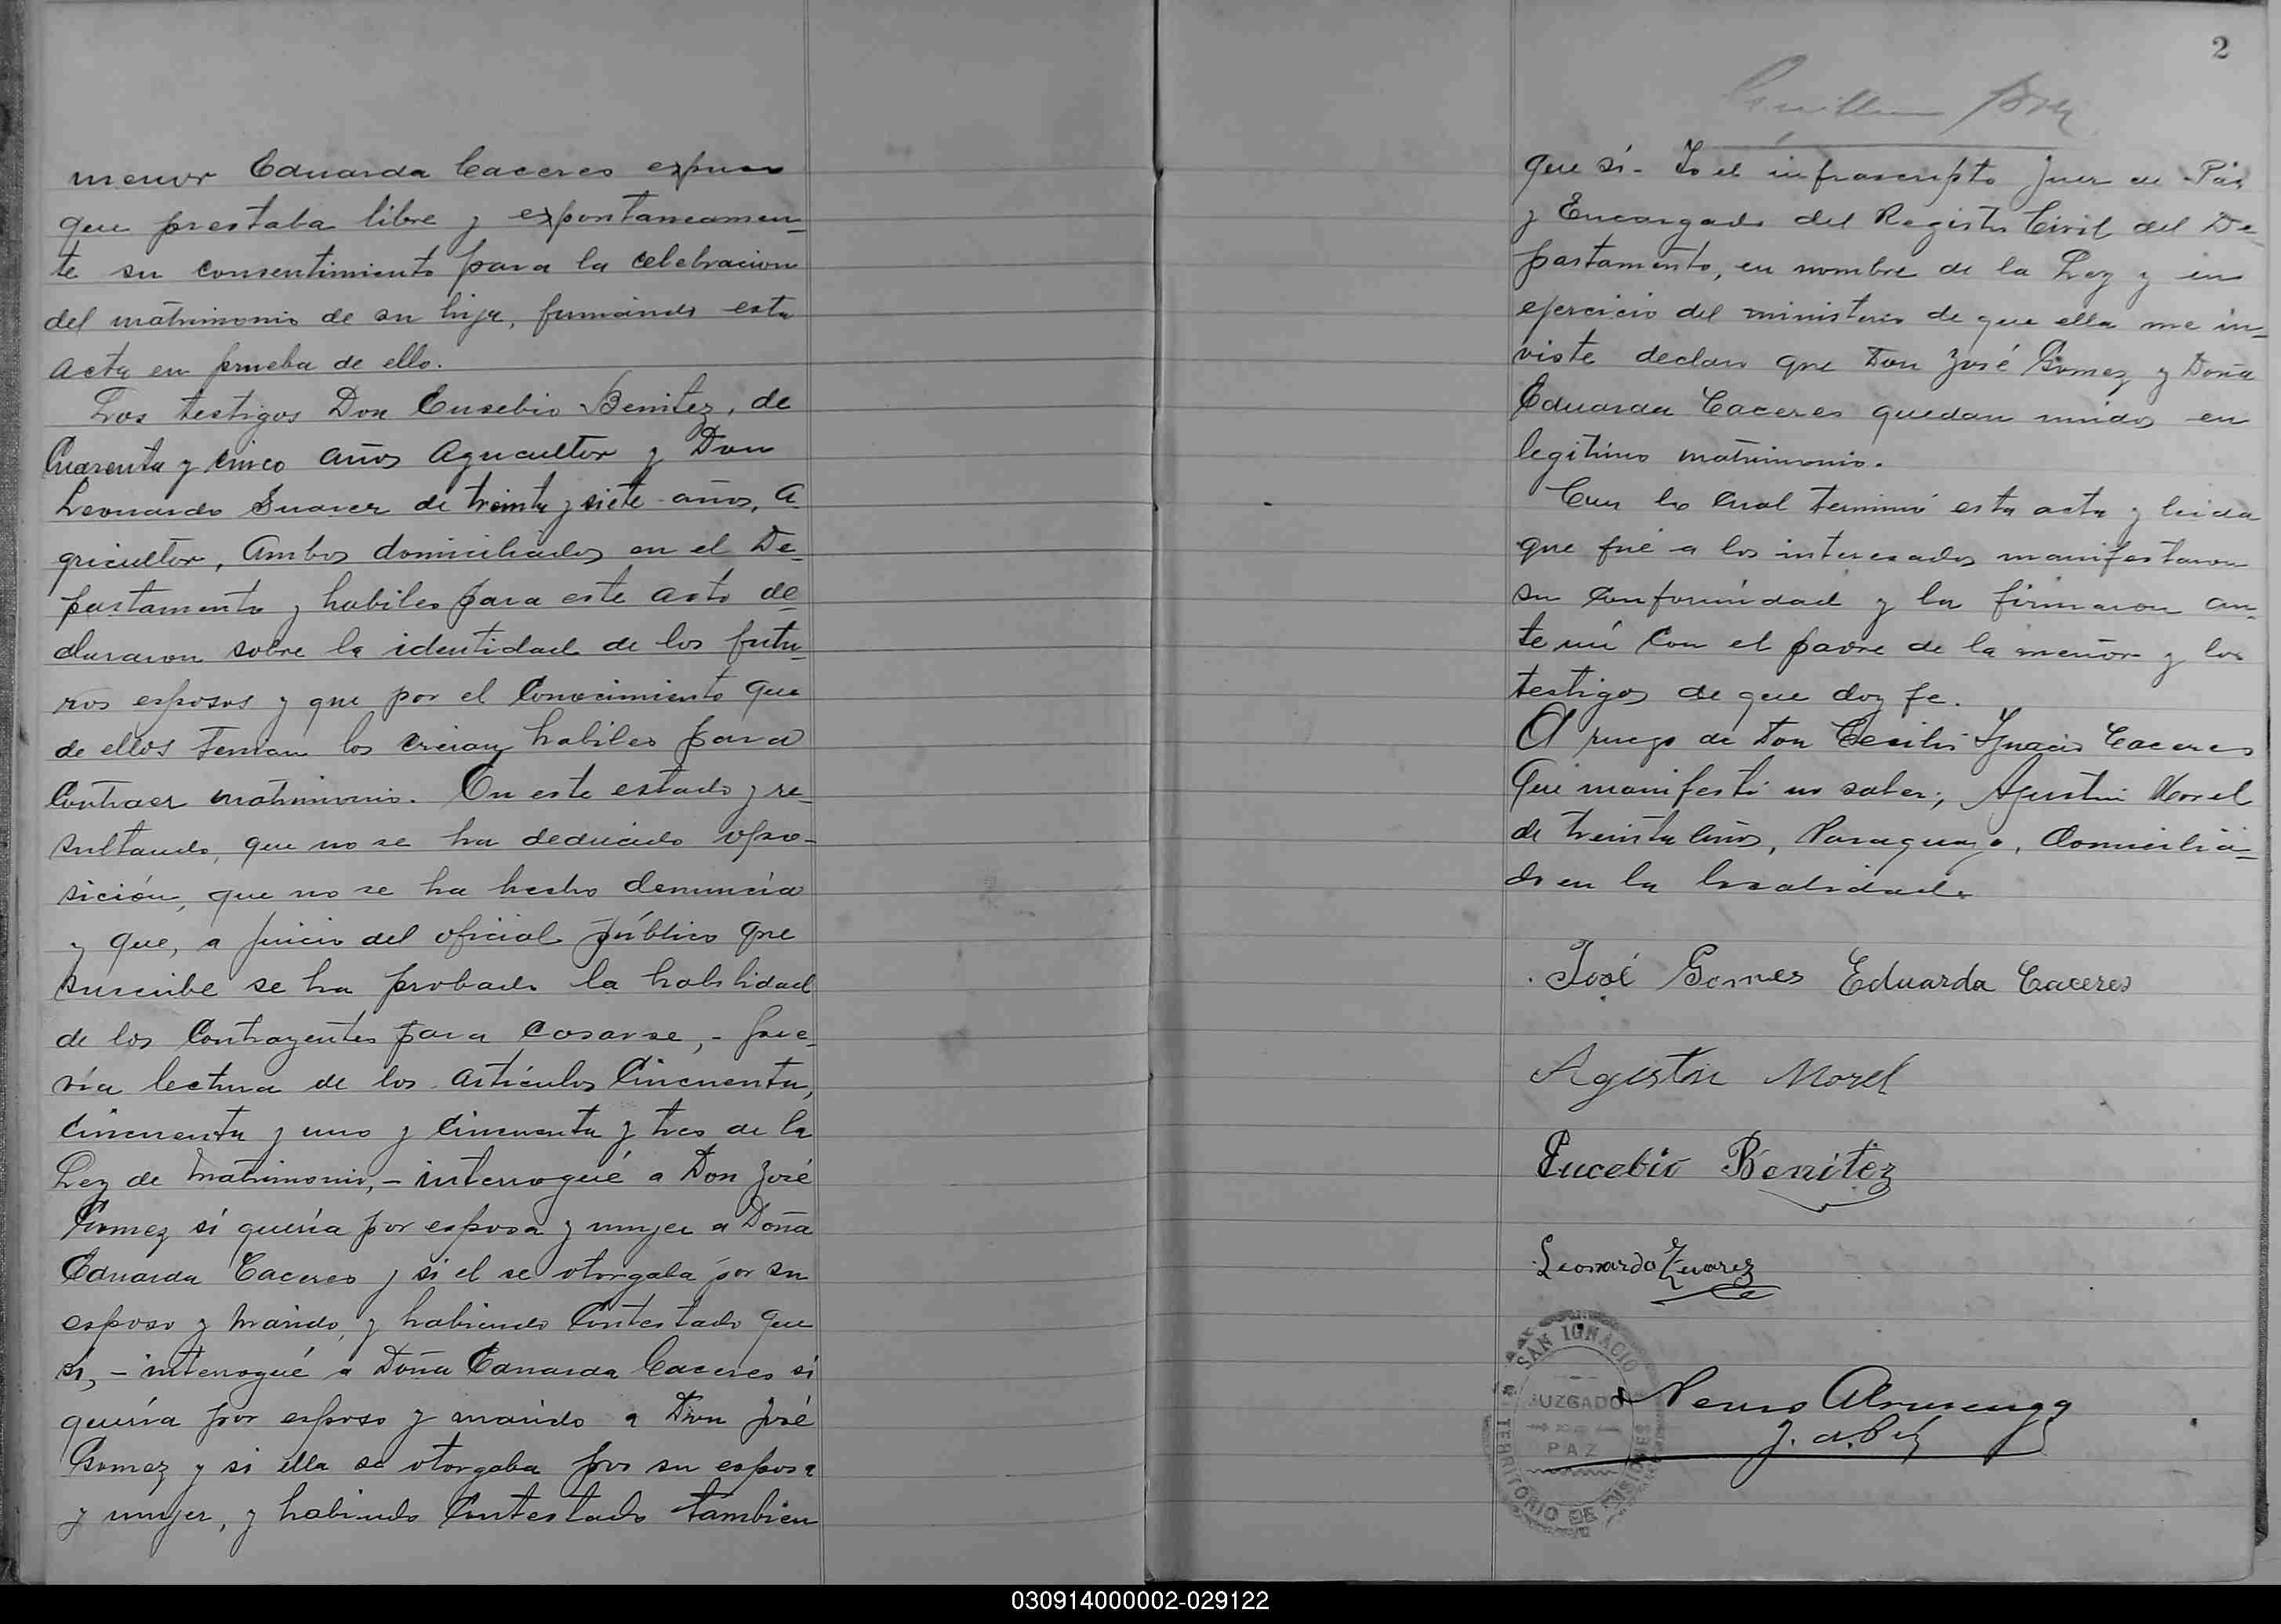 menor Eduarda Caceres expuso
que prestaba libre y expontaneamen-
te su consentimiento para la celebracion
del matrimonio de su hija, firmando esta
acta en prueba de ello.
Los testigos Don Eusebio Benitez, de
Cuarenta y cinco años Agricultor y Don
Leonardo Suarez de treinta y siete años, a
gricultor, Ambos domiciliados en el De-
partamento y habiles para este acto de-
clararon sobre la identidad de los futu-
ros esposos y que por el Conocimiento que
de ellos tenian los creian habiles para
Contraer matrimonio. En este estado y re-
sultando, que no se ha deducido opo-
sición, que no se ha hecho denuncia
y que, a juicio del oficial público que
suscribe se ha probado la habilidad
de los Contrayentes para casarse, - pre-
via lectura de los articulos Cincuenta,
Cincuenta y uno y Cincuenta y tres de la
Ley de Matrimonio, - interrogué a Don José
Gomez si quería por esposa y mujer a Doña
Eduarda Caceres y si el se otorgaba por su
esposo y Marido, y habiendo Contestado que
si, - interrogué a Doña Eduarda Caceres si
quería por esposo y marido a Don José
Gomez y si ella se otorgaba por su esposa
y mujer, y habiendo Contestado tambien
2
que si - Yo el infrascripto Juez de Paz
y Encargado del Registro Civil del De-
partamento, en nombre de la Ley y en
ejercicio del ministerio de que ella me in-
viste declaro que Don José Gomez y Doña
Eduarda Caceres quedan unidos en
legitimo matrimonio.
Con lo Cual terminó esta acta y leida
que fué a los interesados manifestaron
su Conformidad y la firmaron an-
te mí Con el padre de la menor y los
testigos de que doy fe.
A ruego de Don Cecilio Ignacio Caceres
Que manifestó no saber; Agustin Morel
de treinta años, Paraguayo, domicilia-
do en la localidad.
José Gomes Eduarda Caceres
Agustin Morel
Eucebio Benitez
Leonardo Zuarez
SAN IGNACIO
JUZGADO
PAZ
TERRITORIO DE MISIONES
J. de Paz
030914000002-029122